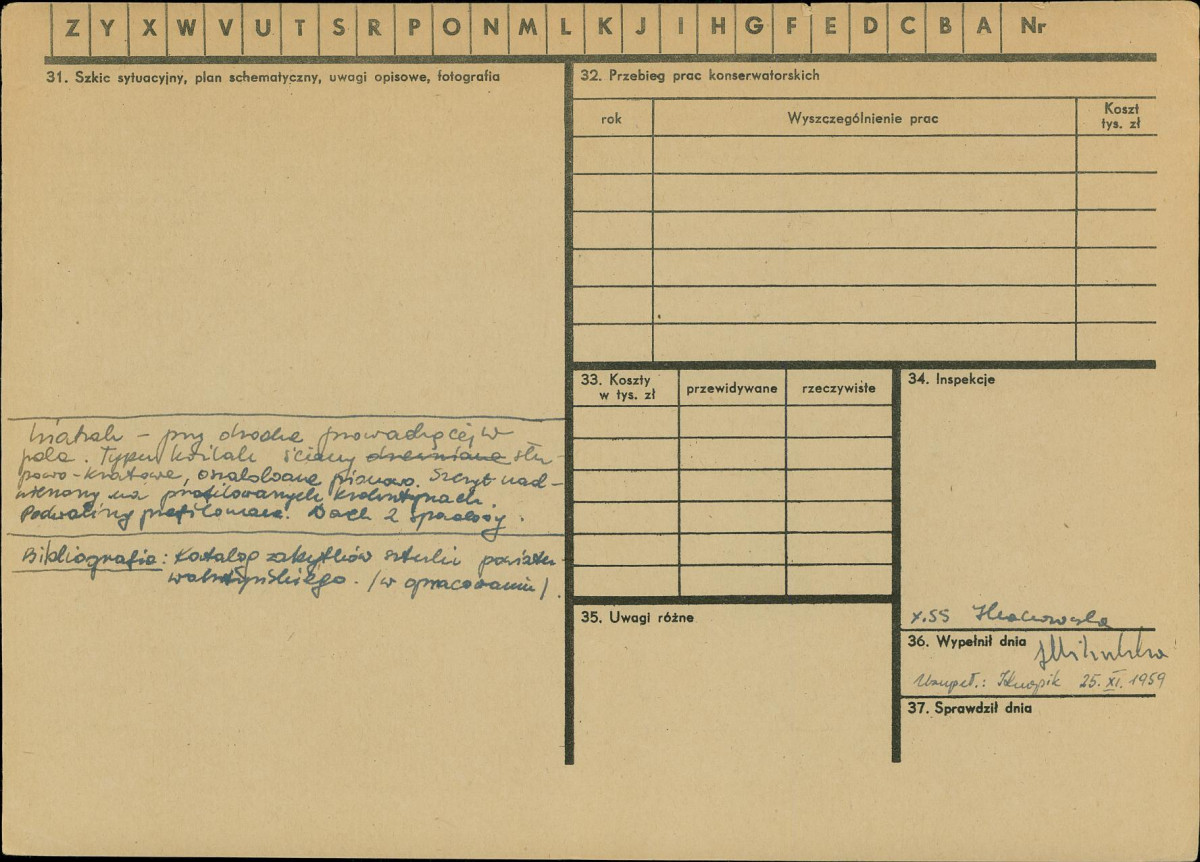 Z Y X W V U T S R P O N M L K J I H G F E D C B A Nr
31. Szkic sytuacyjny, plan schematyczny, uwagi opisowe, fotografia
Wiatrak – przy drodze prowadzącej w
pola. Typu koźlak ściany drewniane słu-
powo-kratowe, oszalowane pionowo. Szczyt nad-
wieszony na profilowanych
Podwaliny profilowane. Dach 2 spadowy.
Bibliografia: Katalog zabytków sztuki powiatu
/w opracowaniu/.
32. Przebieg prac konserwatorskich
rok
Wyszczególnienie prac
Koszt
tys. zł
33. Koszty
w tys. zł
przewidywane
rzeczywiste
34. Inspekcje
X.55
35. Uwagi różne
36. Wypełnił dnia
Uzupeł.: Knapik 25. XI. 1959
37. Sprawdził dnia